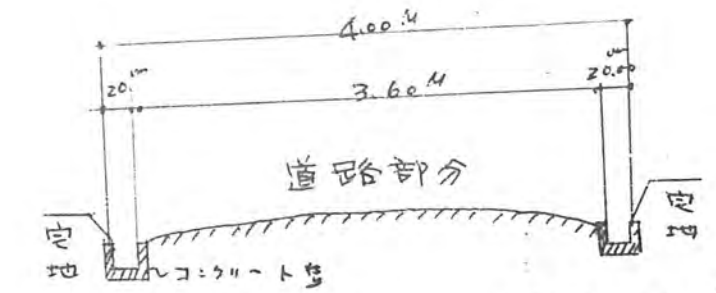 4.00M
20.cm
3.60M
20.cm
道路部分
宅地
宅地
コンクリート